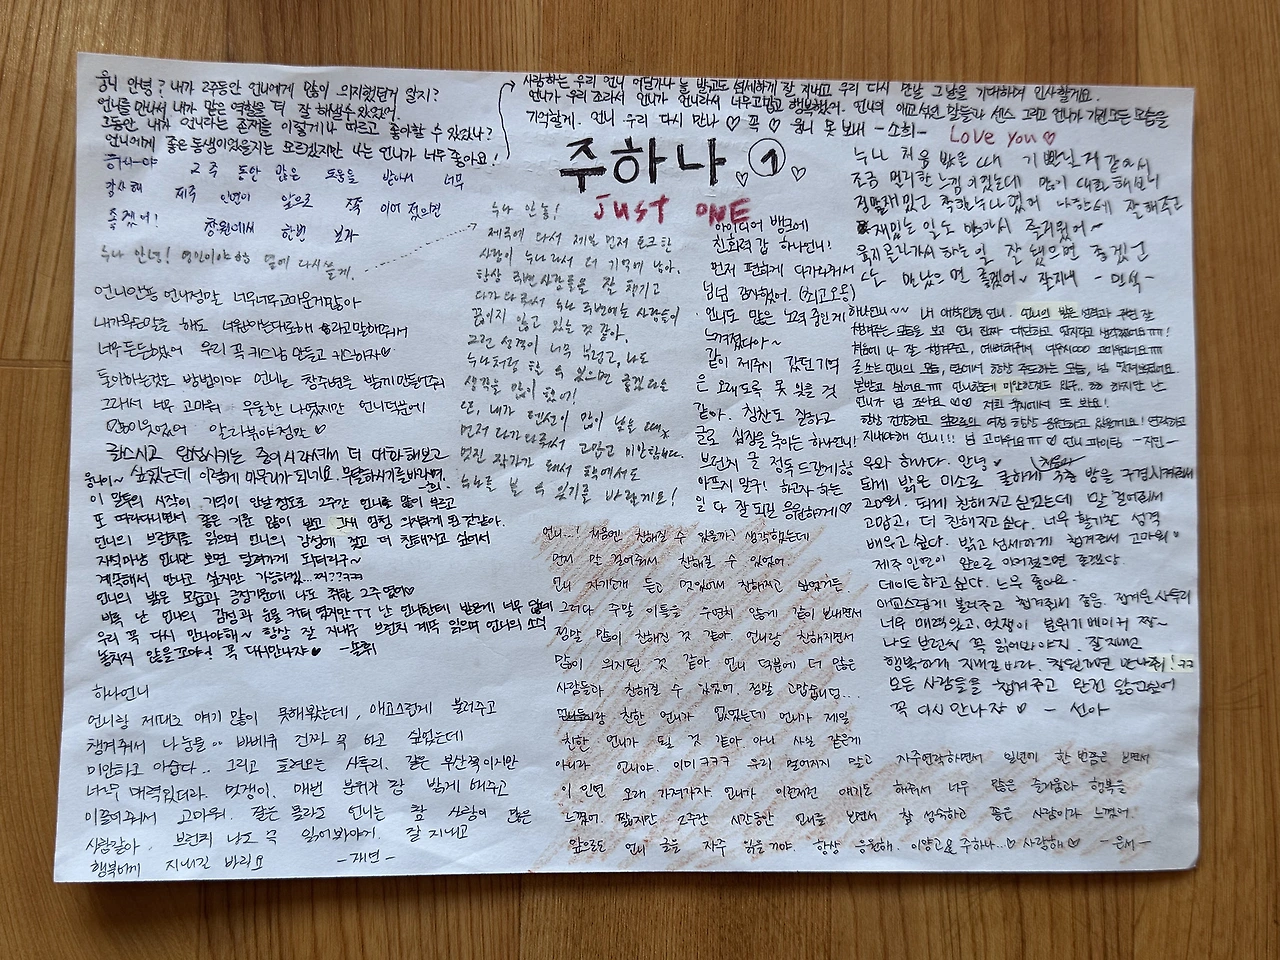 웅니 안녕? 내가 2주동안 언니에게 많이 의지했던거 알지?
언니를 만나서 내가 맡은 역할을 더 잘 해낼수 있었어.
그동안 내가 언니라는 존재를 이렇게나 따르고 좋아할 수 있었나?
언니에게 좋은 동생이었을지는 모르겠지만 나는 언니가 너무 좋아요!
사랑하는 우리 언니 어딜가나 늘 밝고도 섬세하게 잘 지내고 우리 다시 만날 그날을 기대하며 인사할게요.
언니가 우리 조라서 언니가 언니라서 너무 고맙고 행복했어. 언니의 애교섞인 말들과 센스 그리고 언니가 가진 모든 모습을
기억할게. 언니 우리 다시 만나 ♡ 꼭 ♡ 웅니 못 보내 -소희-
Love you ♡
주하나 ①
JUST ONE
2주 동안 많은 도움을 받아서 너무
감사해 제주 인연이 앞으로 쭉 이어 졌으면
좋겠어! 창원에서 한번 보자
누나 안녕! 영인이야 옆에 다시 쓸게.
누나 안녕!
제주에 와서 제일 먼저 토크한
사람이 누나라서 더 기억에 남아.
항상 주변 사람들을 잘 챙기고
다가와줘서 누나 주변에는 사람들이
끊이지 않고 있는 것 같아.
그런 성격이 너무 부럽고, 나도
누나처럼 될 수 있으면 좋겠다는
생각을 많이 했어!
또, 내가 텐션이 많이 낮을 때도
먼저 다가와줘서 고맙고 미안합니다.
멋진 작가가 돼서 책에서도
누나를 볼 수 있기를 바랄게요!
아이디어 뱅크에
친화력 갑 하나언니!
먼저 편하게 다가와줘서
넘넘 감사했어. (최고 오용)
언니도 많은 노력 중인게
느껴졌다아~
같이 제주에 갔던 기억
은 오래도록 못 잊을 것
같아. 칭찬도 잘하고
글로 심장을 녹이는 하나언니!
브런치 글 정독 드갈게 항상
아프지 말구! 하고자 하는
일 다 잘 되길 응원하께♡
누나 처음 봤을 때 기 빨릴거 같아서
조금 멀리한 느낌이 있는데 많이 대화해보니
정말 재밌고 착한 누나였어 나한테 잘해주고
재밌는 익도 받아서 즐거웠어~
육지 올라가서 하는 일 잘 됐으면 좋겠고
또 만났으면 좋겠어~ 잘지내 -민석-
하나언니~ 내 애착인형 언니. 언니의 밝은 성격과 주변 잘
챙겨주는 모습을 보고 언니 진짜 대단하고 멋지다고 생각했어요ㅠㅠ!
처음에 나 잘 챙겨주고, 예뻐해줘서 너무너무 고마웠어요ㅠㅠ
글쓰는 언니의 모습, 옆에서 항상 주도하는 모습, 넘 멋져보였어요.
본받고 싶어요ㅠㅠ 언니한테 미안한것도 있구.. ㅎㅎ 하지만 난
언니가 넘 조아요♡♡ 저희 육지에서 또 봐요!
항상 건강하고 앞으로의 여정 항상 응원하고 있을게요! 연락하고
지내야해 언니!!! 넘 고마워요ㅠ♡ 언니 파이팅 -지민-
언니안뇽 언니정말 너무너무고마운게많아
내가무슨말을 해도 너원하는대로해 라고말해줘서
너무든든했어 우리 꼭 키스남 만들고 키스하자♡
돌아하는것도 방법이야 언니는 참주변을 밝게만들어줘
그래서 너무 고마워 우울한 나였지만 언니덕분에
많이웃었어 알라뷰야정말♡
글쓰시고 완성시키는 중이시라서 더 대화해보고
싶었는데 이렇게 마무리가 되네요. 무탈하시기를 바라며
웅니~
이 말투의 시작이 기억이 안날 정도로 2주간 언니를 많이 부르고
또 따라다니면서 좋은 기운 많이 받고 그새 엄청 의지하게 된 것같아.
언니의 브런치를 읽으며 언니의 감성에 젖고 더 친해지고 싶어서
자석마냥 언니만 보면 달려가게 되더라구~
계속해서 만나고 싶지만 가능하겠...찌??ㅋㅋ
언니의 밝은 모습과 긍정기운에 나도 취한 2주였어♡
비록 난 언니의 감성과 눈물 커터 였지만ㅜㅜ 난 언니한테 받은게 너무 많네
우리 꼭 다시 만나야해~ 항상 잘 지내구 브런치 계속 읽으며 언니의 소식
놓치지 않을꼬야! 꼭 다시만나쟈♡ -솔휘-
언니..! 처음엔 친해질 수 있을까? 생각했는데
먼저 말 걸어줘서 친해질 수 있었어.
언니 자기소개 듣고 멋있어서 친해지고 싶었거든.
그러다 주말 이틀을 우연치 않게 같이 보내면서
정말 많이 친해진 것 같아. 언니랑 친해지면서
많이 의지된 것 같아 언니 덕분에 더 많은
사람들과 친해질 수 있었어. 정말 고맙습니당...
친한 언니가 없었는데 언니가 제일
친한 언니가 된 것 같아. 아니 사실 같은게
아니라 언니야. 이미ㅋㅋㅋ 우리 멀어지지 말고 자주연락하면서 일년에 한 번쯤은 보면서
이 인연 오래 가져가자 언니가 이런저런 얘기도 해줘서 너무 많은 즐거움과 행복을
느꼈어. 짧지만 2주간 시간동안 언니를 보면서 참 성숙하고 좋은 사람이라 느꼈어.
앞으로도 언니 글을 자주 읽을거야. 항상 응원해. 주하나..♡ 사랑해♡ -은서-
우와 하나다. 안녕♡
되게 밝은 미소로 쿨하게 처음에 숙소 방을 구경시켜줘서
고마워. 되게 친해지고 싶었는데 말 걸어줘서
고맙고, 더 친해지고 싶다. 너무 활기찬 성격
배우고 싶다. 밝고 섬세하게 챙겨줘서 고마워♡
제주 인연이 앞으로 이어졌으면 좋겠당
데이트하고 싶다. 느무 좋아요.
애교스럽게 불러주고 챙겨줘서 좋음. 정겨운 사투리
너무 매력있고. 멋쟁이 분위기 메이커 짱~
나도 브런치 꼭 읽어봐야지. 잘 지내고
행복하게 지내길 바라. 창원가면 만나줘!ㅋㅋ
모든 사람들을 챙겨주고 완전 닮고싶어
꼭 다시 만나쟈♡ - 선아
하나언니
언니랑 제대로 얘기 많이 못해봤는데, 애교스럽게 불러주고
챙겨줘서 나 눙물.. 바베큐 진짜 꼭 하고 싶었는데
미안하고 아숩다.. 그리고 표현은 사투리. 같은 부산쪽이지만
너무 매력있더라. 멋쟁이. 매번 분위기 짱 밝게 해주고
이끌어줘서 고마워. 잘은 몰라도 언니는 참 사랑이 많은
사람같아. 브런치 나도 꼭 읽어봐야지. 잘 지내고
행복하게 지내길 바라요 -재연-